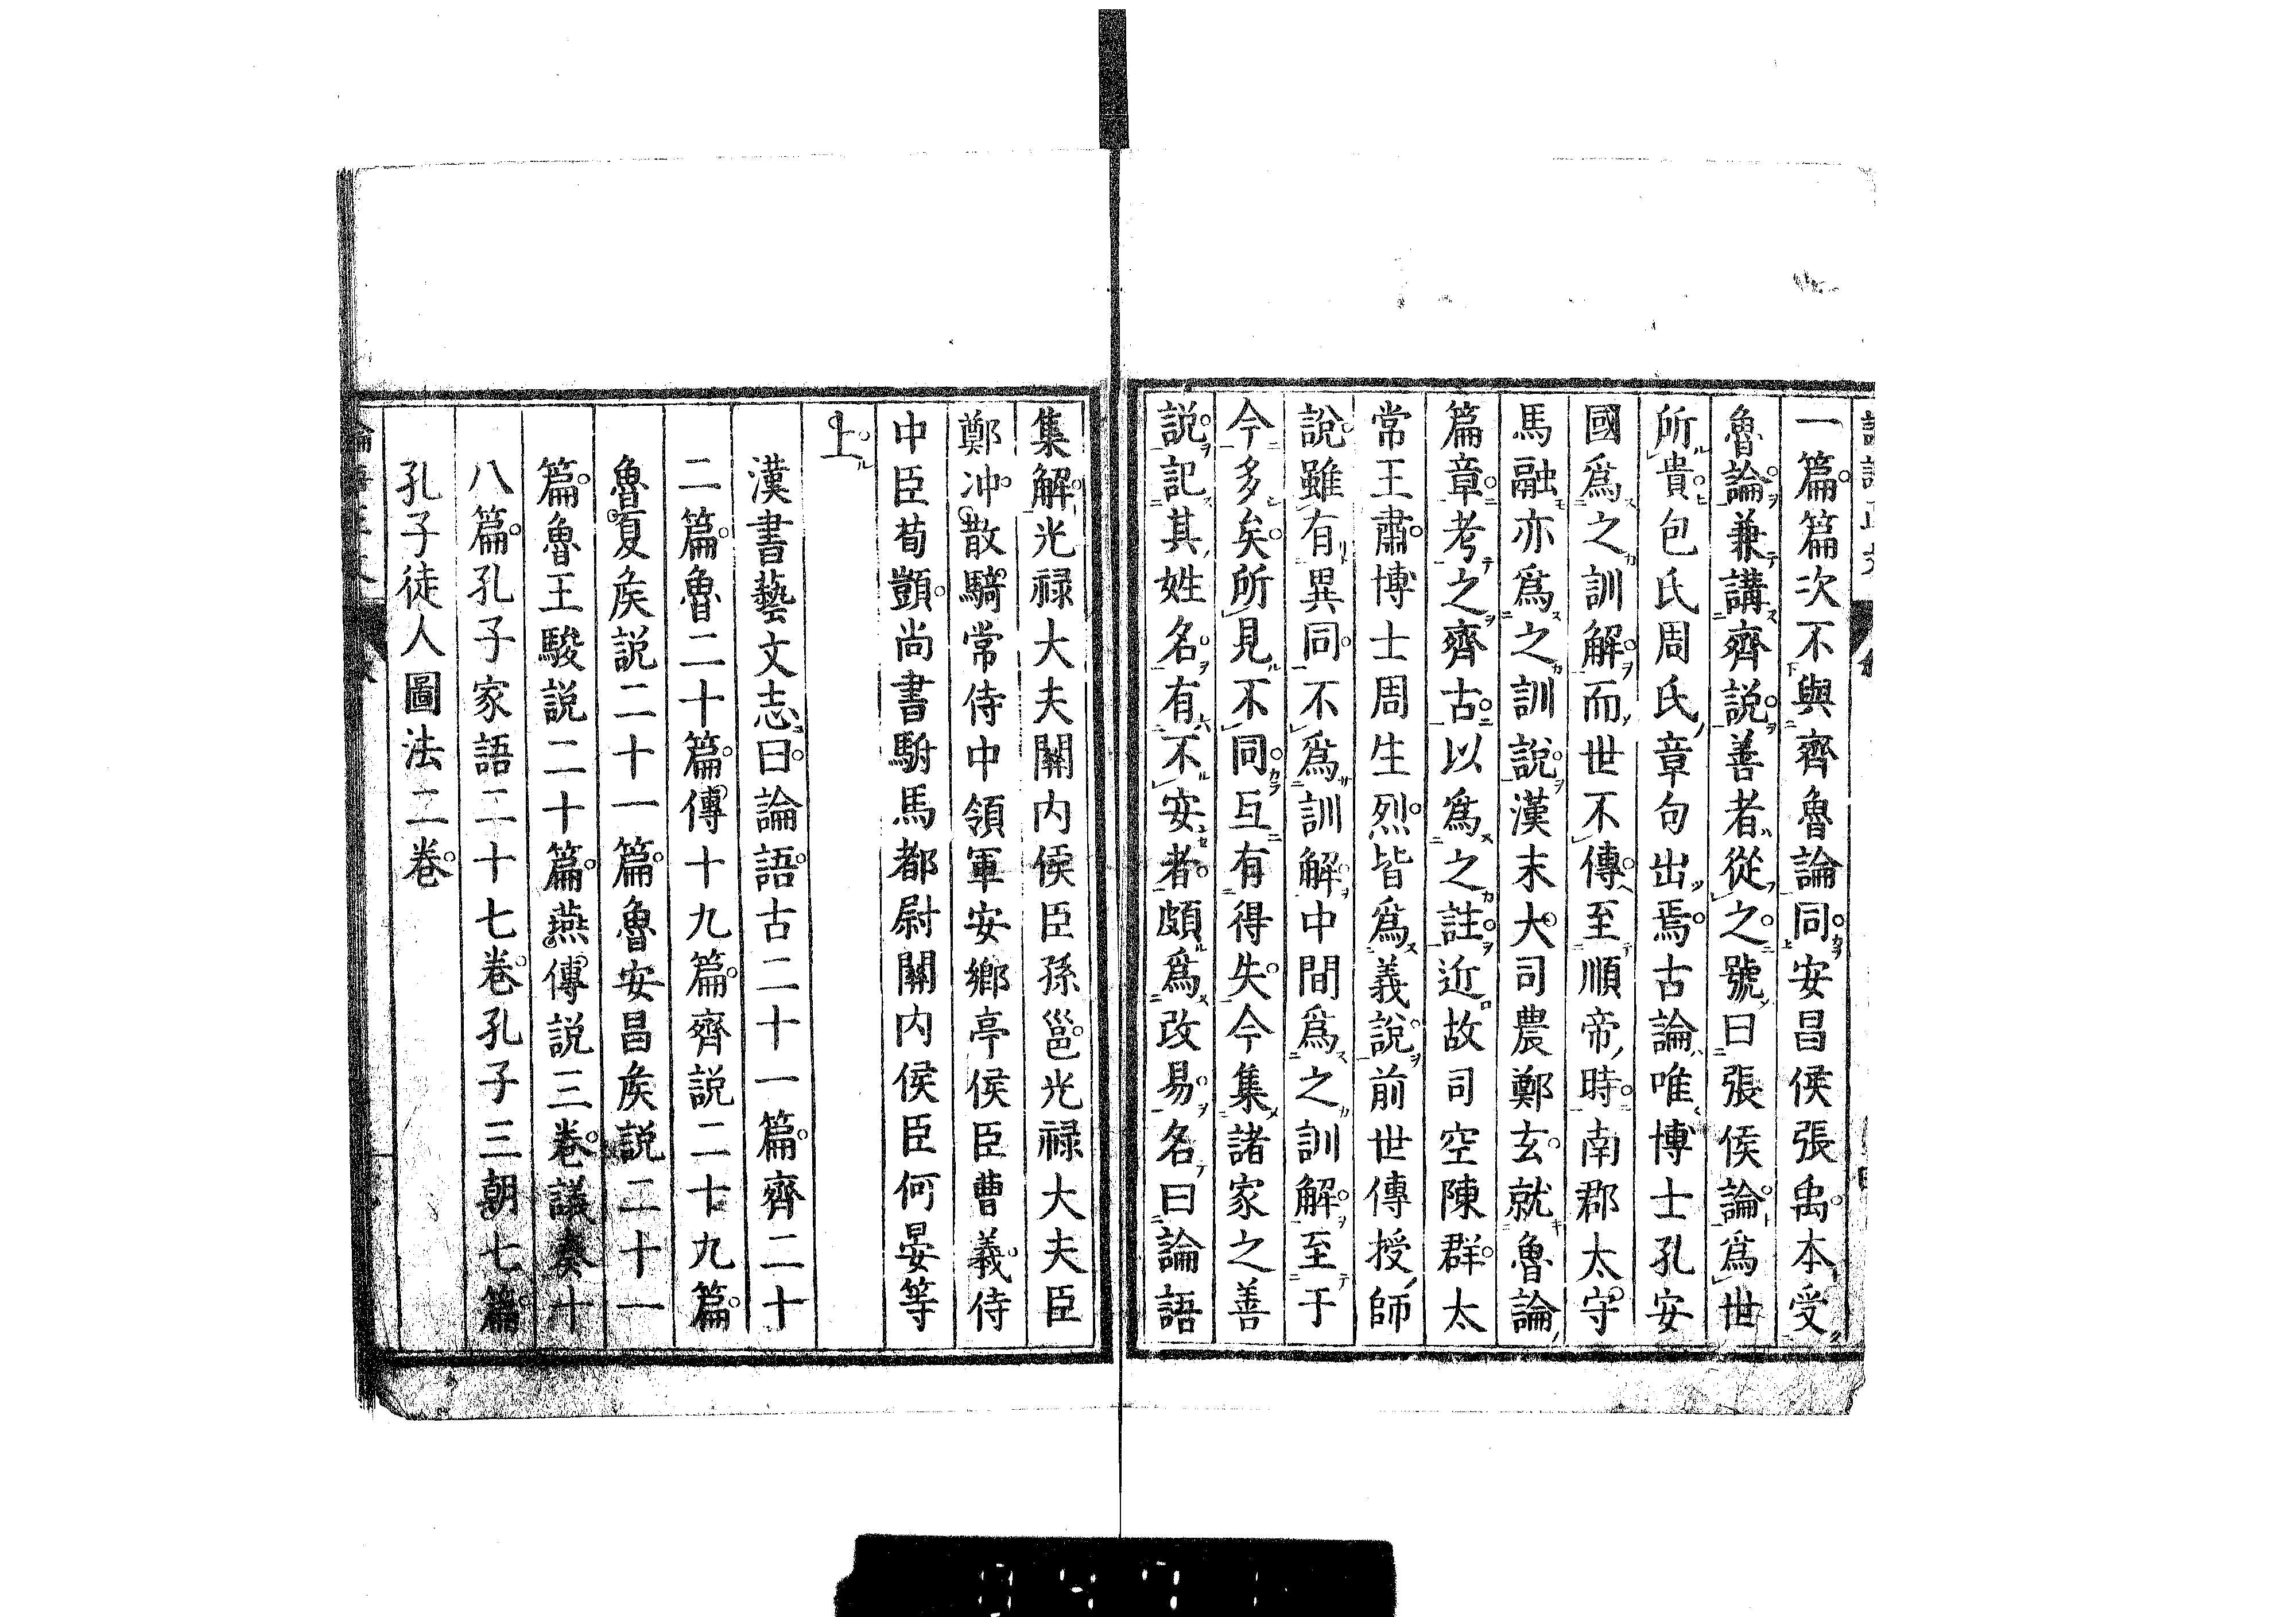 一篇篇次不與齊魯論同安昌侯張禹本受
魯論兼講齊説善者從之號曰張侯論爲世
所貴包氏周氏章句出焉古論唯博士孔安
國爲之訓解而世不傳至順帝時南郡太守
馬融亦爲之訓説漢末大司農鄭玄就魯論
篇章考之齊古以爲之註近故司空陳群太
常王肅博士周生烈皆爲義説前世傳授師
說雖有異同不爲訓解中間爲之訓解至于
今多矣所見不同互有得失今集諸家之善
説記其姓名有不安者頗爲改易名曰論語
集解光禄大夫關内侯臣孫邕光禄大夫臣
鄭冲散騎常侍中領軍安鄉亭侯臣曹義侍
中臣荀顗尚書駙馬都尉關内侯臣何晏等
上
漢書藝文志曰論語古二十一篇齊二十
二篇魯二十篇傳十九篇齊説二十九篇
魯夏矦説二十一篇魯安昌矦説二十一
篇魯王駿説二十篇燕傳説三卷議奏十
八篇孔子家語二十七卷孔子三朝七篇
孔子徒人圖法二卷